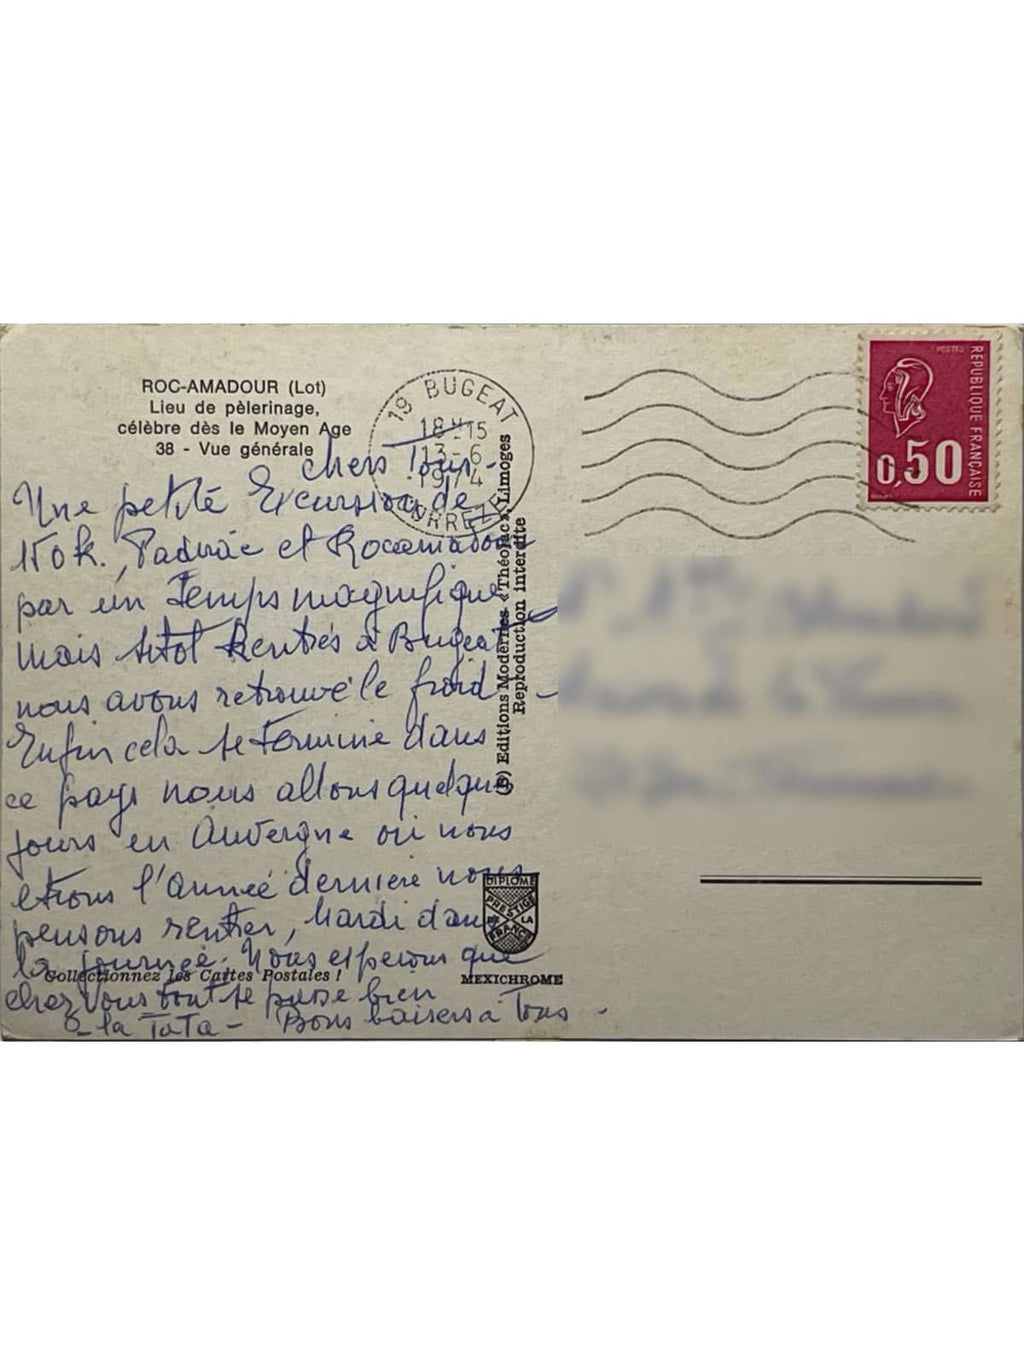 ROC-AMADOUR (Lot)
Lieu de pèlerinage,
célèbre dès le Moyen Age
38 - Vue générale
19 BUGEAT
18H15
13-6
1974
CORREZE
POSTES
REPUBLIQUE FRANÇAISE
0,50
chers Tous,-
Une petite Excursion de
150k., Padirac et Rocamadour
par un Temps magnifique
mais sitot Rentrés à Bugeat
nous avons retrouvé le froid -
Enfin cela se Termine dans
ce pays nous allons quelques
jours en Auvergne où nous
etions l'Année derniere nous
pensons rentrer, Mardi dans
la journée. Nous esperons que
chez Vous tout se passe bien
à la TaTa - Bons baisers à Tous -
(P) Editions Modernes «Théojac», Limoges
Reproduction interdite
DIPLOME
PRESTIGE
DE LA
FRANCE
Collectionnez les Cartes Postales !
MEXICHROME